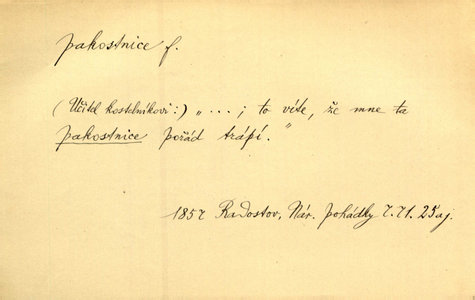 pakostnice f.
(Učitel kostelníkovi:) „...; to víte, že mne ta
pakostnice pořád trápí."
1857 Radostov, Nár. pohádky 7.71. 25 aj.